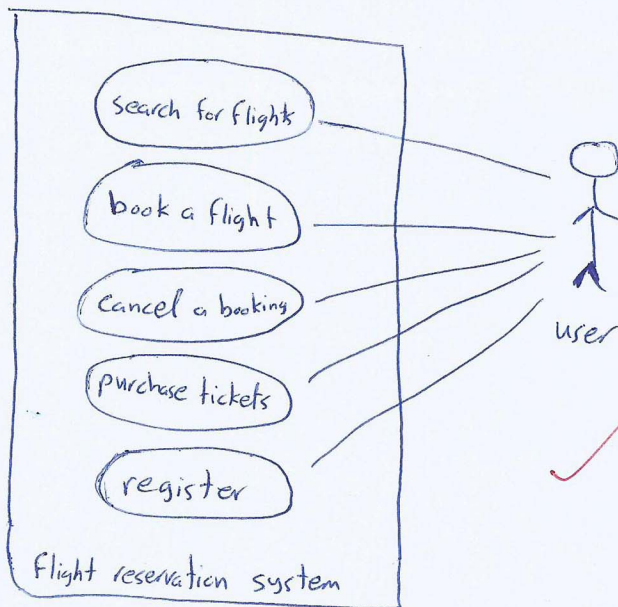 search for flights
book a flight
cancel a booking
purchase tickets
register
flight reservation system
user